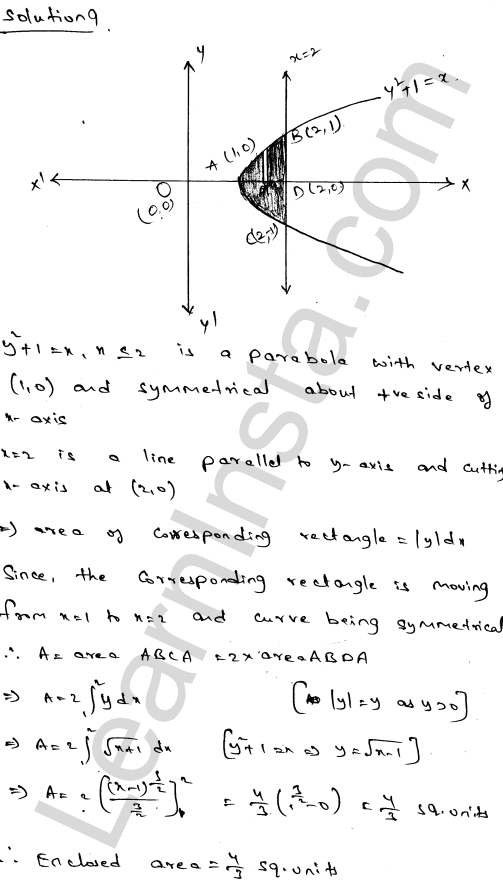 Solution 9.
y
x=2
y²+1=x.
B(2,1)
A (1,0)
x'
x
(0,0)
D(2,0)
C(2,-1)
y'
y²+1=x, x ≤ 2 is a parabola with vertex
(1,0) and symmetrical about +ve side of
x- axis
x=2 is a line parallel to y-axis and cuttin
x-axis at (2,0)
=) area of corresponding rectangle = |y|dx
Since, the corresponding rectangle is moving
from x=1 to x=2 and curve being symmetrical
∴ A= area ABCA =2× area ABDA
=) A=2∫₁² y dx [As |y|=y as y>0]
=) A=2∫₁² √x+1 dx [y²+1=x => y=√x-1]
=) A= 2[(x-1)^(3/2) / (3/2)]₁² = 4/3 (1^(3/2)-0) = 4/3 sq.units
∴ Enclosed area = 4/3 sq.units
LearnInsta.com